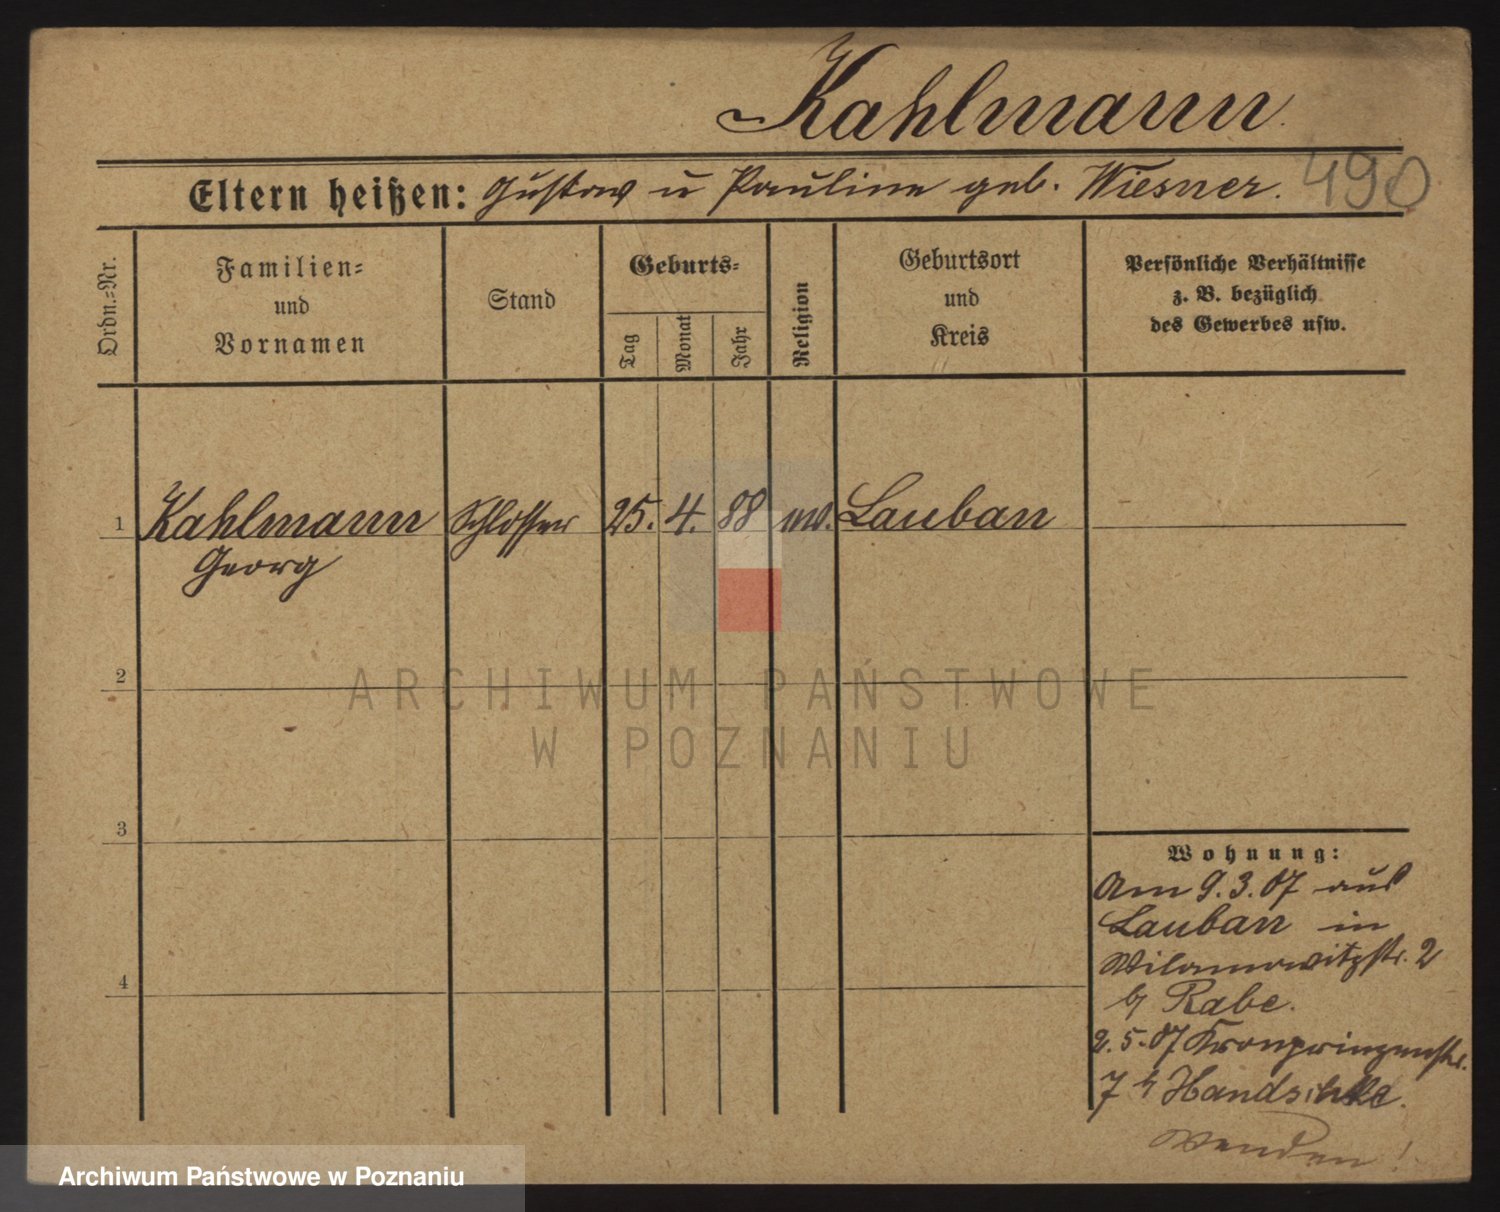 Kahlmann.
Eltern heißen: Gustav u Pauline geb. Wiesner. 490
Ordn.-Nr.
Familien-
und
Vornamen
Stand
Geburts-
Tag
Monat
Jahr
Religion
Geburtsort
und
Kreis
Persönliche Verhältnisse
z. B. bezüglich
des Gewerbes usw.
1 Kahlmann Schlosser 25. 4. 88 ev. Lauban
Georg
2
3
4
Wohnung:
Am 9.3.07 aus
Lauban in
Wilamowitzstr. 2
b/ Rabe.
2.5.07 Kronprinzenstr.
7 b/
Wenden!
ARCHIWUM PAŃSTWOWE
W POZNANIU
Archiwum Państwowe w Poznaniu